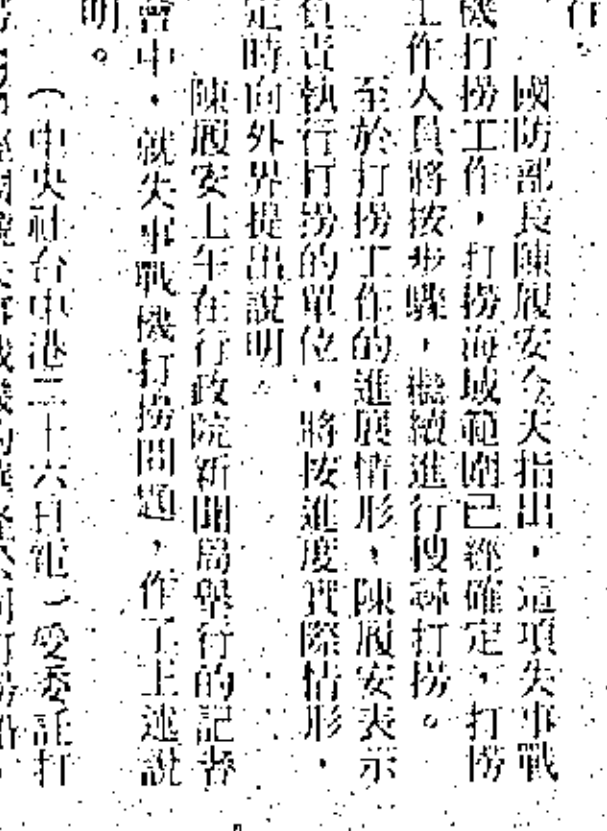 行。
國防部長陳履安今天指出，這項失事戰
機打撈工作，打撈海域範圍已經確定，打撈
工作人員將按步驟，繼續進行搜尋打撈。
至於打撈工作的進展情形，陳履安表示
負責執行打撈的單位，將按進度實際情形，
定時向外界提出說明。
陳履安上午在行政院新聞局舉行的記者
會中，就失事戰機打撈問題，作了上述說
明。
（中央社台中港二十六日電）受委託打